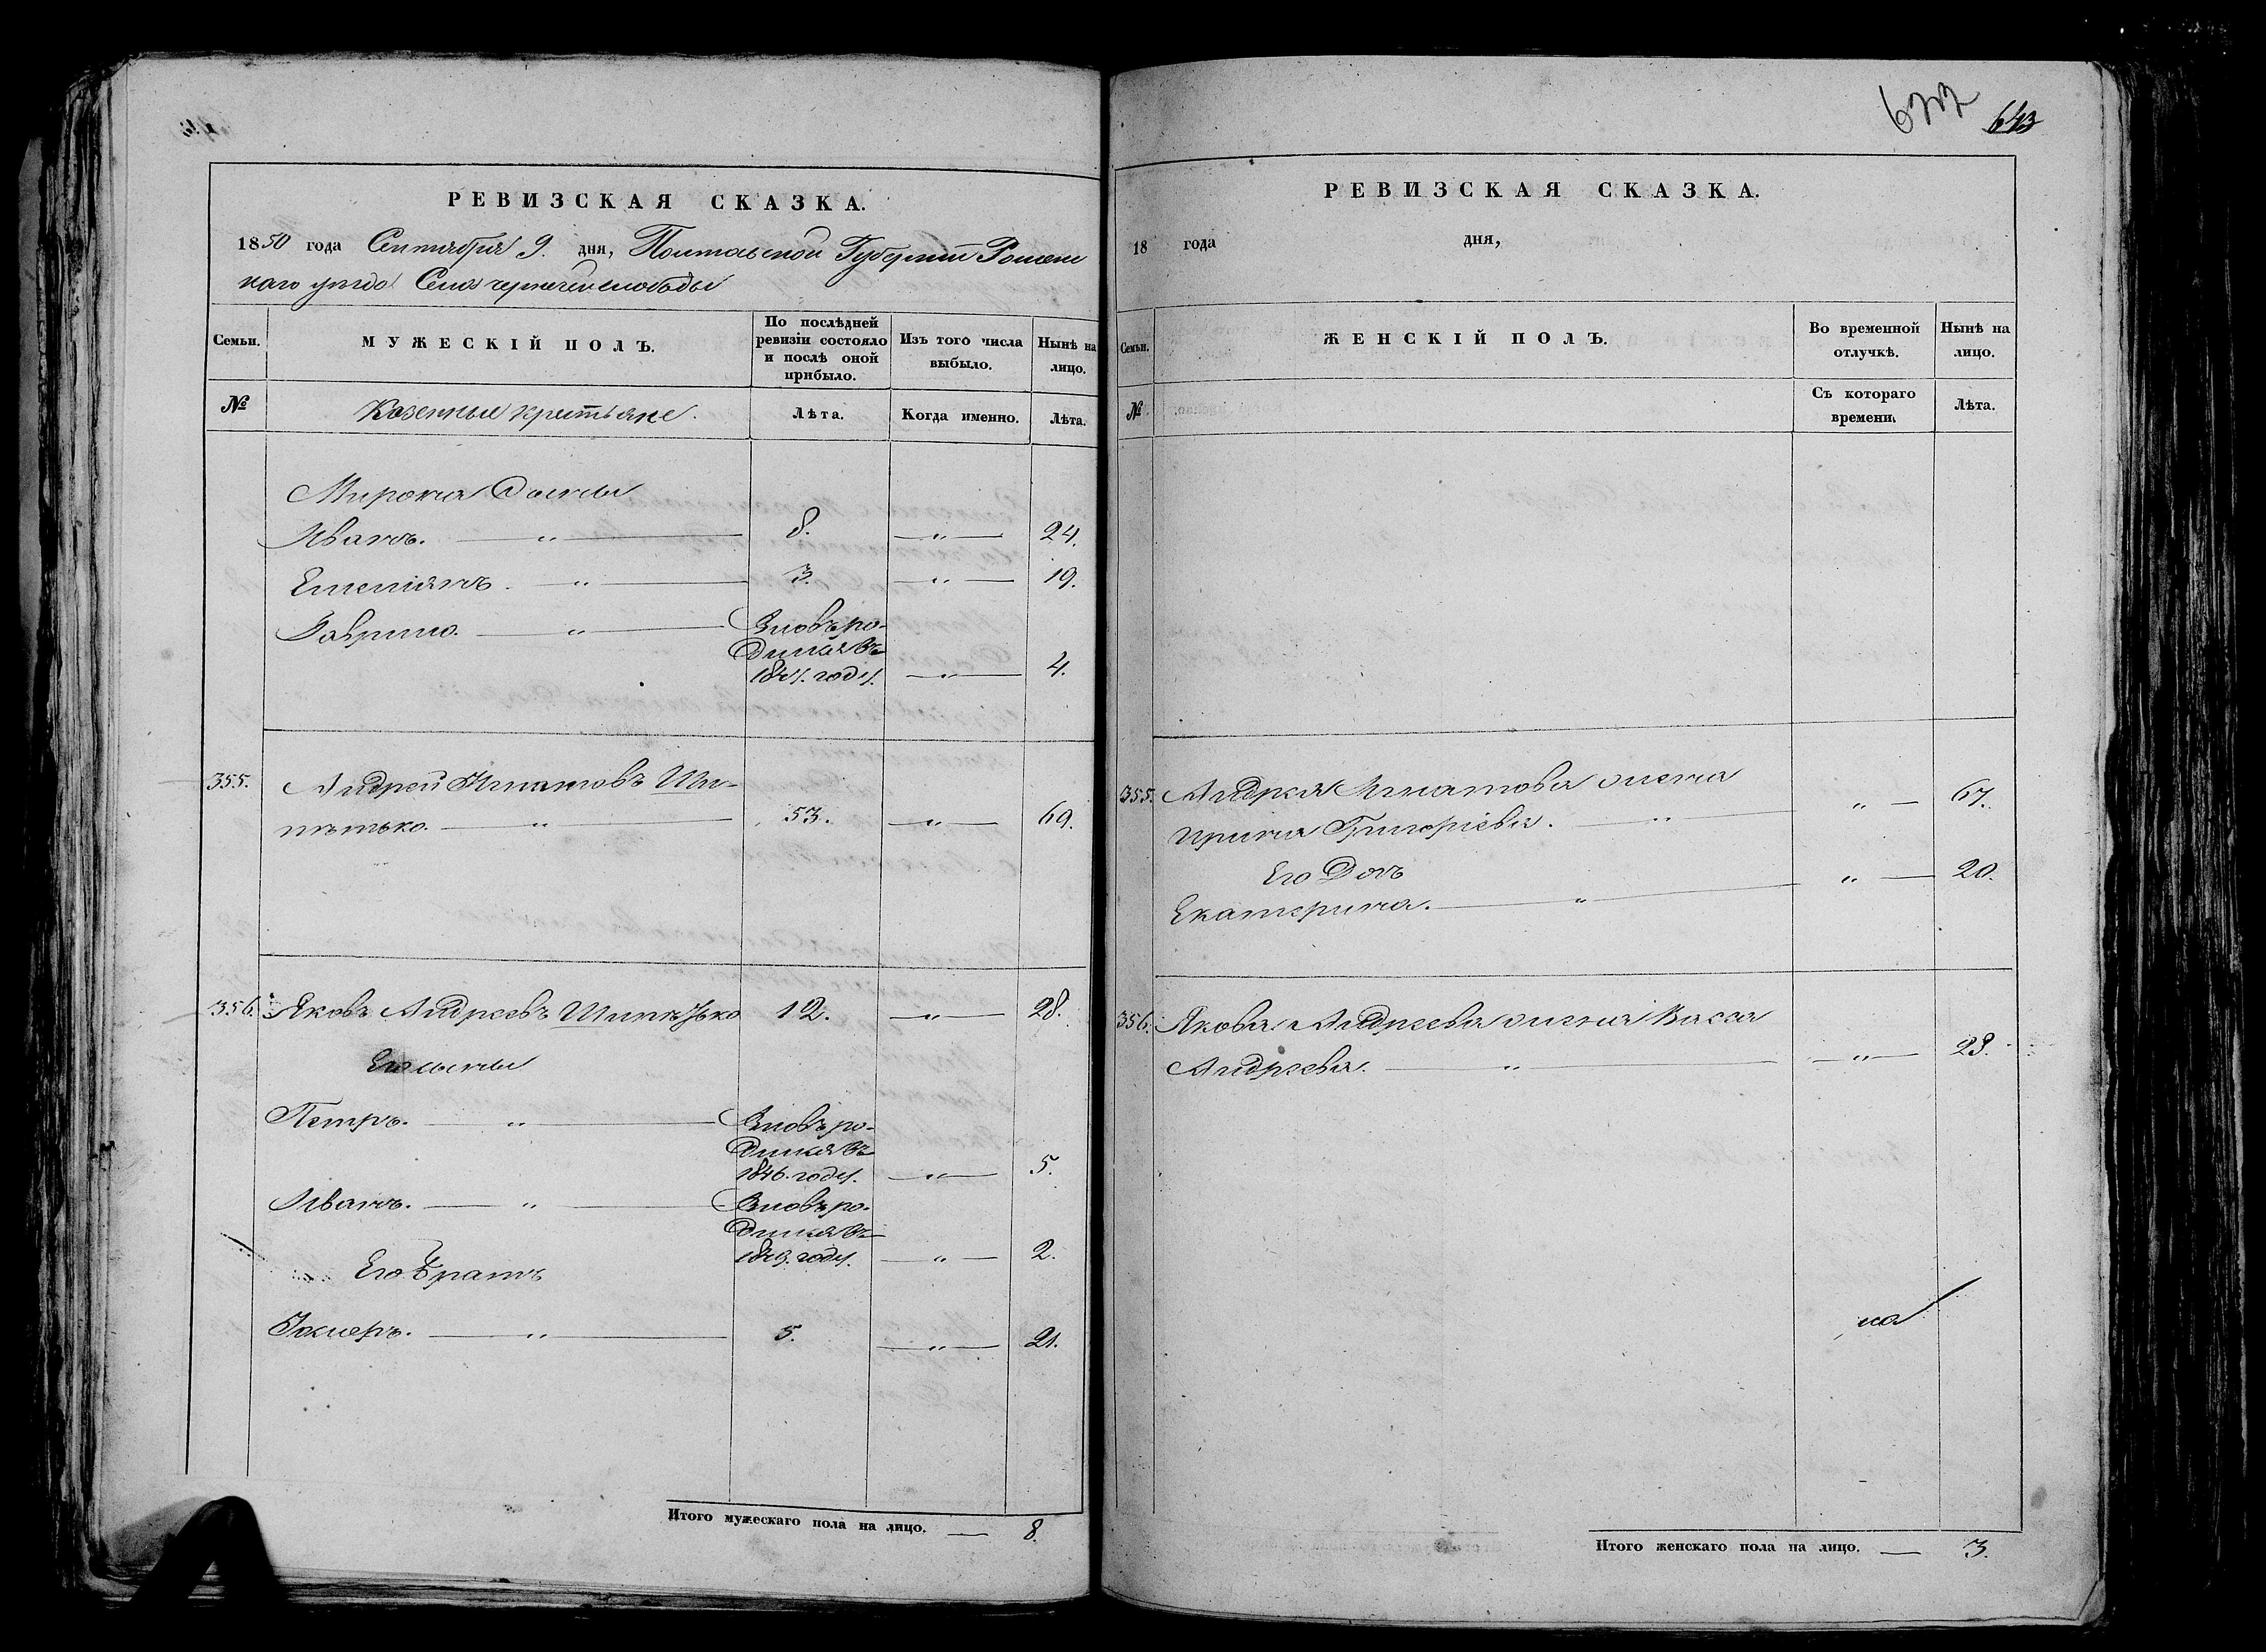 643
РЕВИЗСКАЯ СКАЗКА.
1850 года Сентября 9. дня, Полтавской Губернии Ромен
каго уезда Села чернечей слободы
Семьи.
МУЖЕСКІЙ ПОЛЪ.
По послѣдней ревизіи состояло и послѣ оной прибыло.
Изъ того числа выбыло.
Нынѣ на лицо.
№
Казенные крестьяне.
Лѣта.
Когда именно.
Лѣта.
Мирона Сыны
Иванъ. — „ — 8. — „ — 24.
Емелiянъ. — „ — 3. — „ — 19.
Гаврило. — „ — Вновь ро-
дился въ
году. — „ — 4.
355. Андрей Игнатовъ
53. — „ — 69.
356. Яковъ Андреевъ 12. — „ — 28.
Его сыны
Петръ. — „ — Вновь ро-
дился въ
1846. году. — „ — 5.
Иванъ. — „ — Вновь ро-
дился въ
1849. году. — „ — 2.
Его братъ
— „ — 5. — „ — 21.
Итого мужескаго пола на лицо. — 8.
РЕВИЗСКАЯ СКАЗКА.
18 года дня,
Семьи.
ЖЕНСКІЙ ПОЛЪ.
Во временной отлучкѣ.
Нынѣ на лицо.
№.
Съ котораго времени.
Лѣта.
355. Андрея Игнатова жена
Ирина Григорiева. — „ — „ — 67.
Его Дочь
Екатерина. — „ — „ — 20.
356. Якова Андреева жена Васса
Андреева. — „ — „ — 23.
Итого женскаго пола на лицо. — 3.